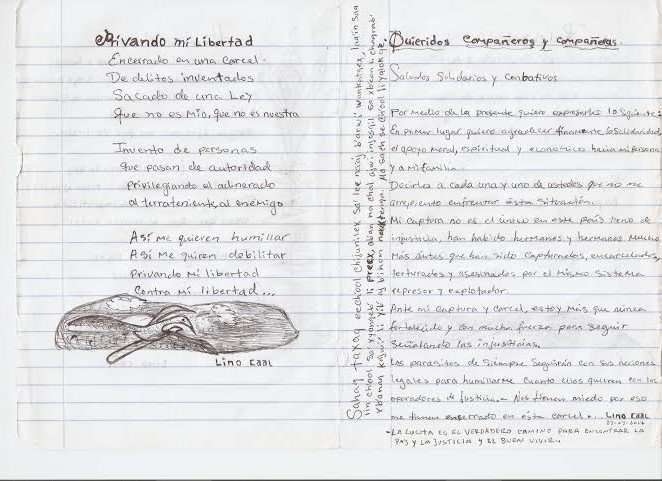 Privando mi Libertad
Encerrado en una carcel.
De delitos inventados
Sacado de una Ley
Que no es Mia, que no es nuestra
Invento de personas
que pasan de autoridad
Privilegiando al adinerado
al terrateniente, al enemigo
Así Me quieren humillar
Así Me quiren debilitar
Privando Mi libertad
Contra Mi libertad...
Lino Caal
Sahaq taxaq eechool Chijunilex
Queridos Compañeros y Compañeras.
Saludos Solidarios y Conbativos
Por Medio de la presente quiero expresarles lo siguiente:
En primer lugar quiero agradecer la Solidaridad,
el apoyo Moral, espiritual y economico hacia mi persona
y a mi familia.
Decirles a cada una y uno de ustedes que no me
arrepiento enfrentar esta situación.
Mi captura no es el único en este país lleno de
injusticia, han habido hermanos y hermanas Mucho
Más antes que han sido Capturados, encarcelados,
torturados y asesinados por el Mismo Sistema
represor y explotador.
Ante mi Captura y Carcel, estoy Más que nunca
fortalecido y con mucha fuerza para Seguir
Señalando las injusticias.
Los parasitos de Siempre Seguirán con sus acciones
legales para humillarme Cuanto ellos quieran con los
operadores de Justicia.- Nos tienen miedo por eso
me tienen encerrado en esta carcel... Lino Caal
- LA LUCHA ES EL VERDADERO CAMINO PARA ENCONTRAR LA
PAZ Y LA JUSTICIA Y EL BUEN VIVIR.